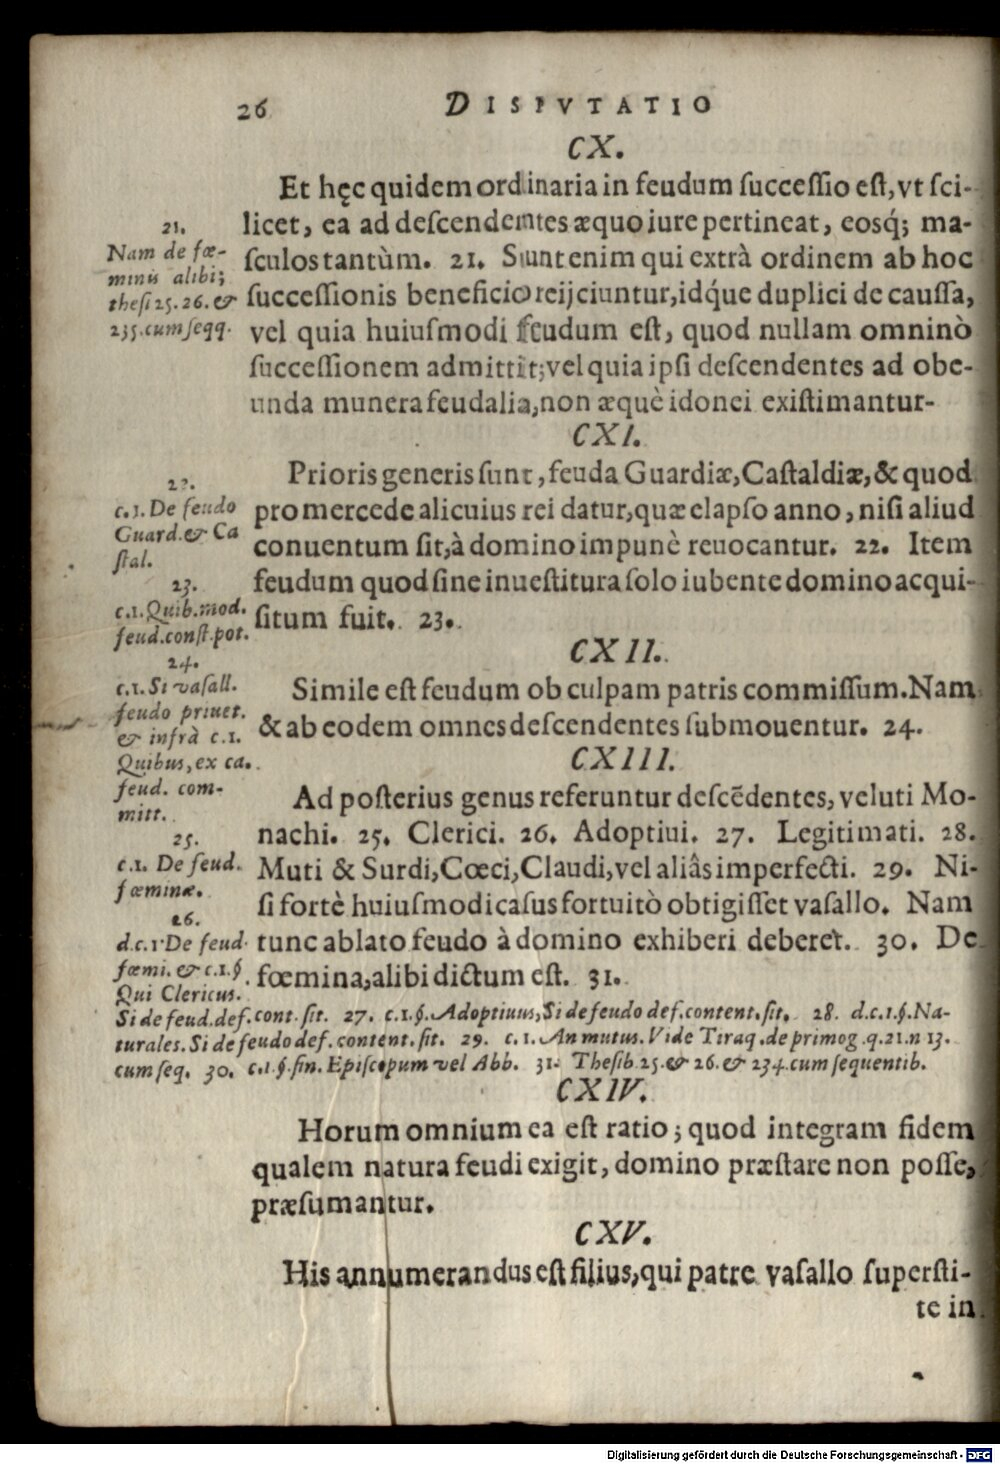 26 DISPVTATIO
CX.
Et hęc quidem ordinaria in feudum ſucceſſio eſt, vt ſci-
licet, ea ad deſcendemtes æquo iure pertineat, eosq́; ma-
ſculos tantùm. 21. Sunt enim qui extrà ordinem ab hoc
ſucceſſionis beneficio reijciuntur, idq́ue duplici de cauſſa,
vel quia huiuſmodi feudum eſt, quod nullam omninò
ſucceſſionem admittit; vel quia ipſi deſcendentes ad obe-
unda munera feudalia, non æquè idonei exiſtimantur-
21.
Nam de fœ-
minis alibi;
theſi 25. 26. &
235. cum ſeqq.
CXI.
Prioris generis ſunt, feuda Guardiæ, Caſtaldiæ, & quod
pro mercede alicuius rei datur, quæ elapſo anno, niſi aliud
conuentum ſit, à domino impunè reuocantur. 22. Item
feudum quod ſine inueſtitura ſolo iubente domino acqui-
ſitum fuit. 23.
22.
c. 1. De feudo
Guard. & Ca
ſtal.
23.
c. 1. Quib. mod.
feud. conſt. pot.
CXII.
Simile eſt feudum ob culpam patris commiſſum. Nam
& ab eodem omnes deſcendentes ſubmouentur. 24.
24.
c. 1. Si vaſall.
feudo priuet.
& infrà c. 1.
Quibus, ex ca.
feud. com-
mitt.
CXIII.
Ad poſterius genus referuntur deſcẽdentes, veluti Mo-
nachi. 25. Clerici. 26. Adoptiui. 27. Legitimati. 28.
Muti & Surdi, Cœci, Claudi, vel aliâs imperfecti. 29. Ni-
ſi fortè huiuſmodi caſus fortuitò obtigiſſet vaſallo. Nam
tunc ablato feudo à domino exhiberi deberet. 30. De
fœmina, alibi dictum eſt. 31.
25.
c. 1. De feud.
fœminæ.
26.
d. c. 1 De feud.
fœmi. & c. 1. §.
Qui Clericus.
Si de feud. def. cont. ſit. 27. c. 1. §. Adoptiuus, Si de feudo def. content. ſit. 28. d. c. 1. §. Na-
turales. Si de feudo def. content. ſit. 29. c. 1. An mutus. Vide Tiraq. de primog. q. 21. n 13.
cum ſeq. 30. c. 1. §. fin. Epiſcopum vel Abb. 31. Theſib. 25. & 26. & 234. cum ſequentib.
CXIV.
Horum omnium ea eſt ratio; quod integram fidem
qualem natura feudi exigit, domino præſtare non poſſe,
præſumantur.
CXV.
His annumerandus eſt filius, qui patre vaſallo ſuperſti-
te in
Digitalisierung gefördert durch die Deutsche Forschungsgemeinschaft - DFG